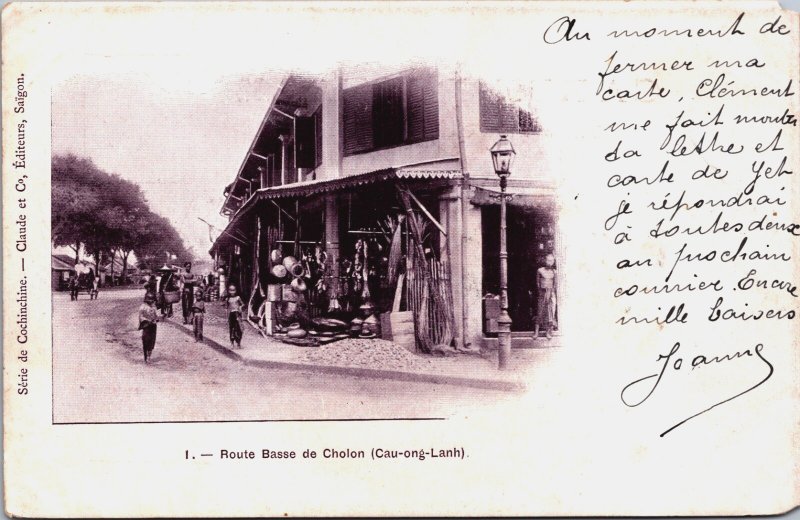 Série de Cochinchine. — Claude et Co, Éditeurs, Saïgon.
Au moment de
fermer ma
carte, Clément
me fait monter
ta lettre et
carte de
Je répondrai
à toutes deux
au prochain
courrier. Encore
mille baisers
Joanne
1. — Route Basse de Cholon (Cau-ong-Lanh).